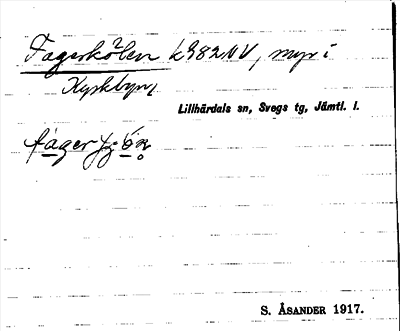 Fagerkölen k 982 NV, myr i
Kyrkbyn,
Lillhärdals sn, Svegs tg, Jämtl. l.
S. ÅSANDER 1917.